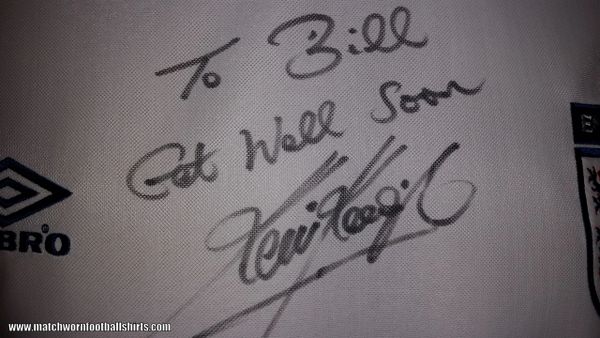 To Bill
Get Well Soon
Kevin Keegan
BRO
www.matchwornfootballshirts.com